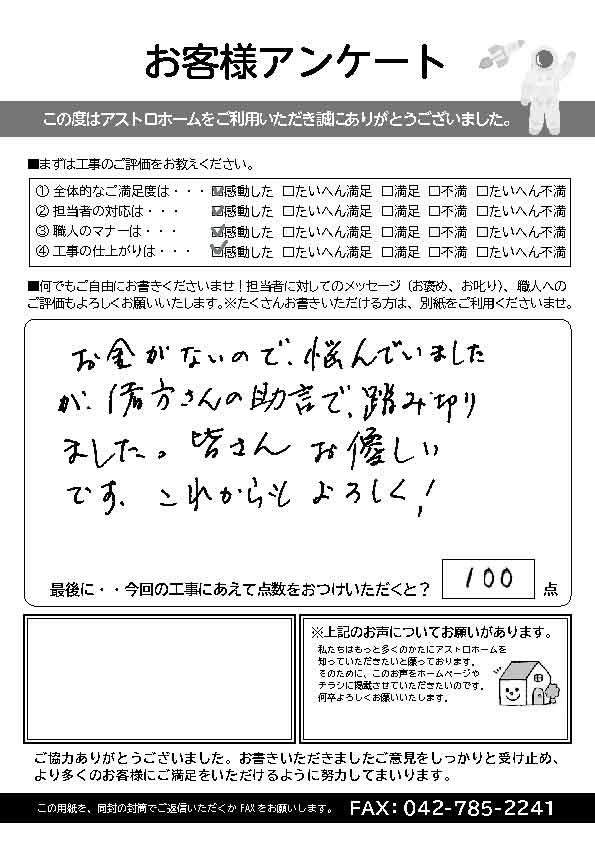 お客様アンケート
この度はアストロホームをご利用いただき誠にありがとうございました。
■まずは工事のご評価をお教えください。
① 全体的なご満足度は・・・ ☑感動した □たいへん満足 □満足 □不満 □たいへん不満
② 担当者の対応は・・・ ☑感動した □たいへん満足 □満足 □不満 □たいへん不満
③ 職人のマナーは・・・ ☑感動した □たいへん満足 □満足 □不満 □たいへん不満
④ 工事の仕上がりは・・・ ☑感動した □たいへん満足 □満足 □不満 □たいへん不満
■何でもご自由にお書きくださいませ！担当者に対してのメッセージ（お褒め、お叱り）、職人への
ご評価もよろしくお願いいたします。※たくさんお書きいただける方は、別紙をご利用くださいませ。
お金がないので、悩んでいました
が、緒方さんの助言で、踏み切り
ました。皆さん お優しい
です。これからも よろしく！
最後に・・今回の工事にあえて点数をおつけいただくと？ 100 点
※上記のお声についてお願いがあります。
私たちはもっと多くのかたにアストロホームを
知っていただきたいと願っております。
そのために、このお声をホームページや
チラシに掲載させていただきたいのです。
何卒よろしくお願いいたします。
ご協力ありがとうございました。お書きいただきましたご意見をしっかりと受け止め、
より多くのお客様にご満足をいただけるように努力してまいります。
この用紙を、同封の封筒でご返信いただくか FAX をお願いします。 FAX: 042-785-2241